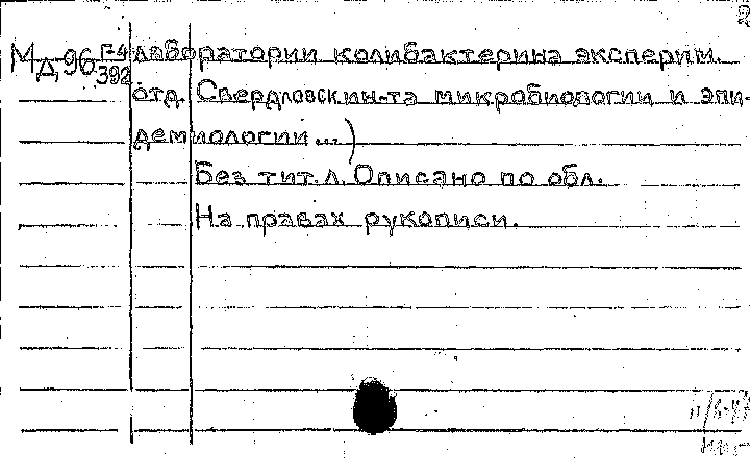 2
Мд 96 Г-4 лаборатории колибактерина эксперим.
392 отд. Свердловск ин-та микробиологии и эпи-
демиологии ...)
Без тит. л. Описано по обл.
На правах рукописи.